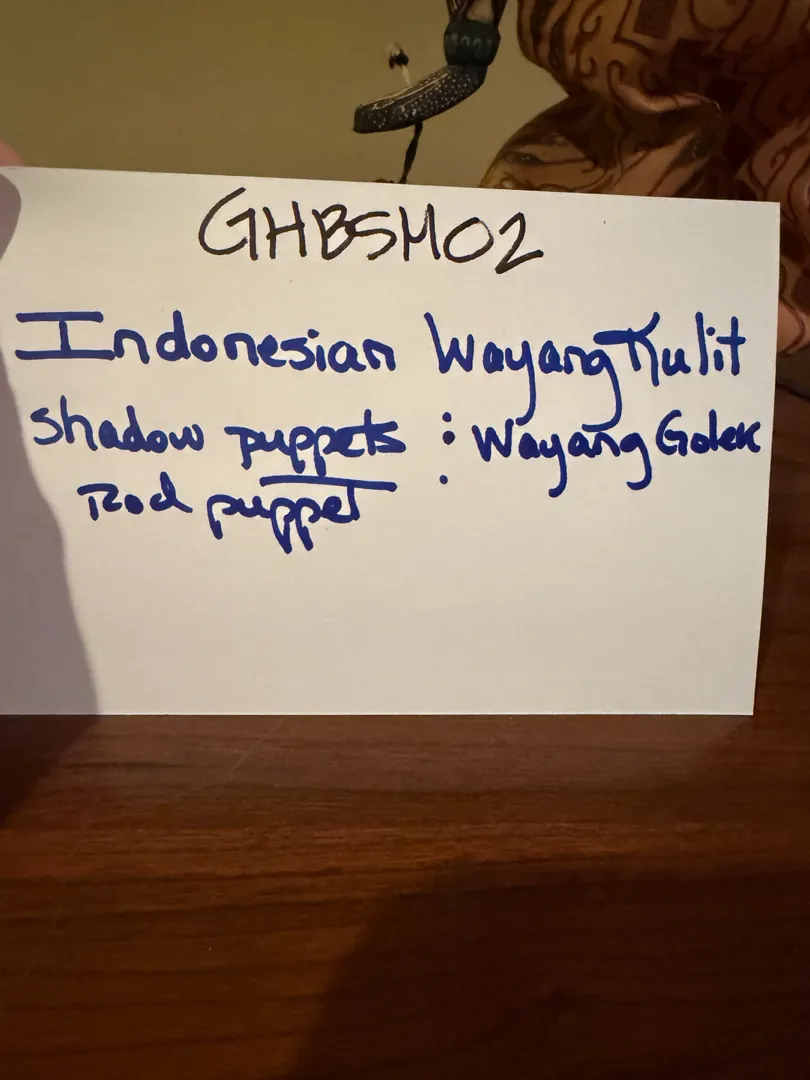 GHBSM02
Indonesian Wayang Kulit
shadow puppets : Wayang Golek
Rod puppet